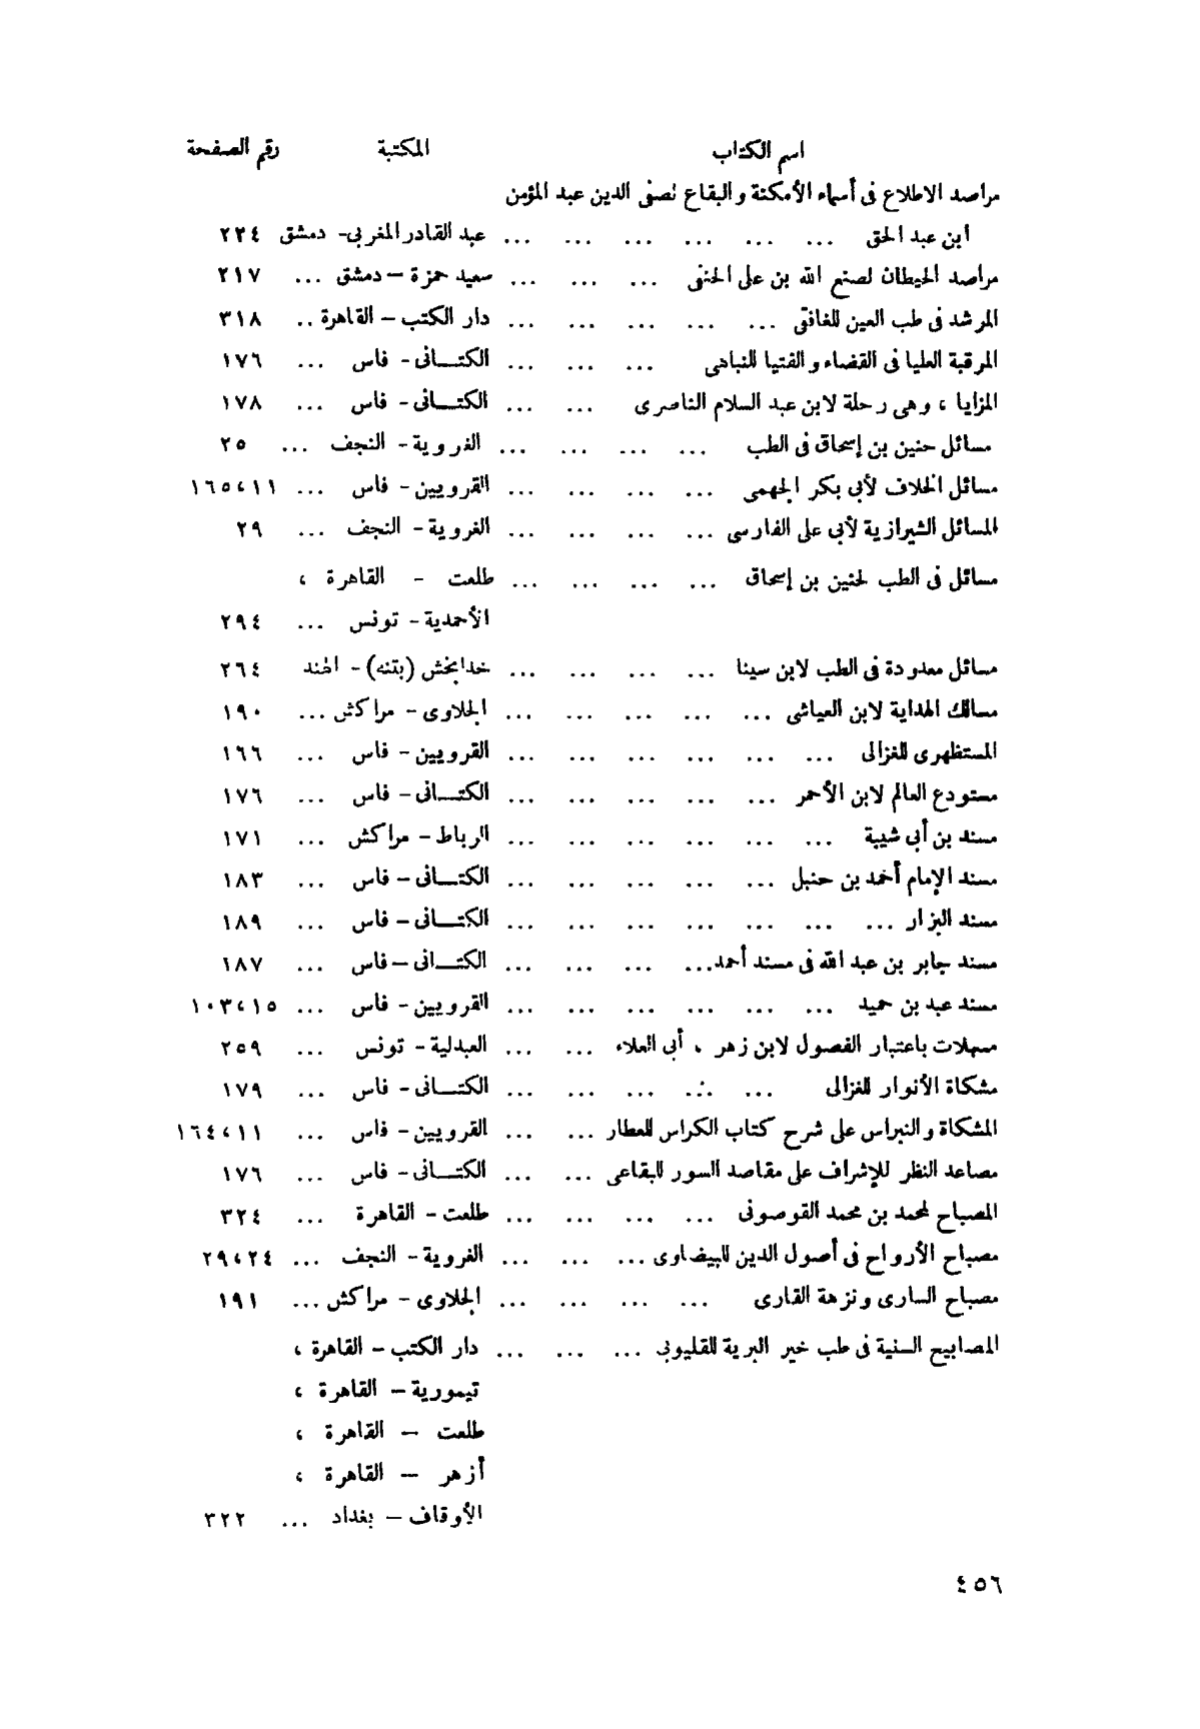 اسم الكتاب المكتبة رقم الصفحة
مراصد الاطلاع فى أسماء الأمكنة والبقاع لصفى الدين عبد المؤمن
ابن عبد الحق ... ... ... ... ... ... عبد القادر المغربى- دمشق ٢٢٤
مراصد الحيطان لصنع الله بن على الحنفى ... ... ... سعيد حمزة – دمشق ... ٢١٧
المرشد فى طب العين للغافقى ... ... ... ... ... دار الكتب – القاهرة .. ٣١٨
المرقبة العليا فى القضاء والفتيا للنباهى ... ... ... الكتــانى - فاس ... ١٧٦
المزايا ، وهى رحلة لابن عبد السلام الناصرى ... ... الكتــانى - فاس ... ١٧٨
مسائل حنين بن إسحاق فى الطب ... ... ... ... الغروية - النجف ... ٢٥
مسائل الخلاف لأبى بكر الجهمى ... ... ... ... القرويين - فاس ... ١١،١٦٥
المسائل الشيرازية لأبى على الفارسى ... ... ... ... الغروية - النجف ... ٢٩
مسائل فى الطب لحنين بن إسحاق ... ... ... ... طلعت - القاهرة ،
الأحمدية - تونس ... ٢٩٤
مسائل معدودة فى الطب لابن سينا ... ... ... ... خدابخش (بتنه) - الهند ٢٦٤
مسالك الهداية لابن العياشى ... ... ... ... ... الجلاوى - مراكش ... ١٩٠
المستظهرى للغزالى ... ... ... ... ... ... القرويين - فاس ... ١٦٦
مستودع العالم لابن الأحمر ... ... ... ... ... الكتــانى - فاس ... ١٧٦
مسند بن أبى شيبة ... ... ... ... ... ... الرباط - مراكش ... ١٧١
مسند الإمام أحمد بن حنبل ... ... ... ... ... الكتــانى - فاس ... ١٨٣
مسند البزار ... ... ... ... ... ... ... الكتــانى – فاس ... ١٨٩
مسند جابر بن عبد الله فى مسند أحمد... ... ... ... الكتــانى – فاس ... ١٨٧
مسند عبد بن حميد ... ... ... ... ... ... القرويين - فاس ... ١٥،١٠٣
مسهلات باعتبار الفصول لابن زهر ، أبى العلاء ... ... العبدلية - تونس ... ٢٥٩
مشكاة الأنوار للغزالى ... ... ... ... ... الكتــانى - فاس ... ١٧٩
المشكاة والنبراس على شرح كتاب الكراس للعطار ... ... القرويين - فاس ... ١١،١٦٤
مصاعد النظر للإشراف على مقاصد السور للبقاعى ... ... الكتــانى - فاس ... ١٧٦
المصباح لمحمد بن محمد القوصونى ... ... ... ... طلعت - القاهرة ... ٣٢٤
مصباح الأرواح فى أصول الدين للبيضاوى ... ... ... الغروية - النجف ... ٢٤،٢٩
مصباح السارى ونزهة القارى ... ... ... ... الجلاوى - مراكش ... ١٩١
المصابيح السنية فى طب خير البرية للقليوبى ... ... ... دار الكتب – القاهرة ،
تيمورية – القاهرة ،
طلعت – القاهرة ،
أزهر – القاهرة ،
الأوقاف – بغداد ... ٣٢٢
٤٥٦